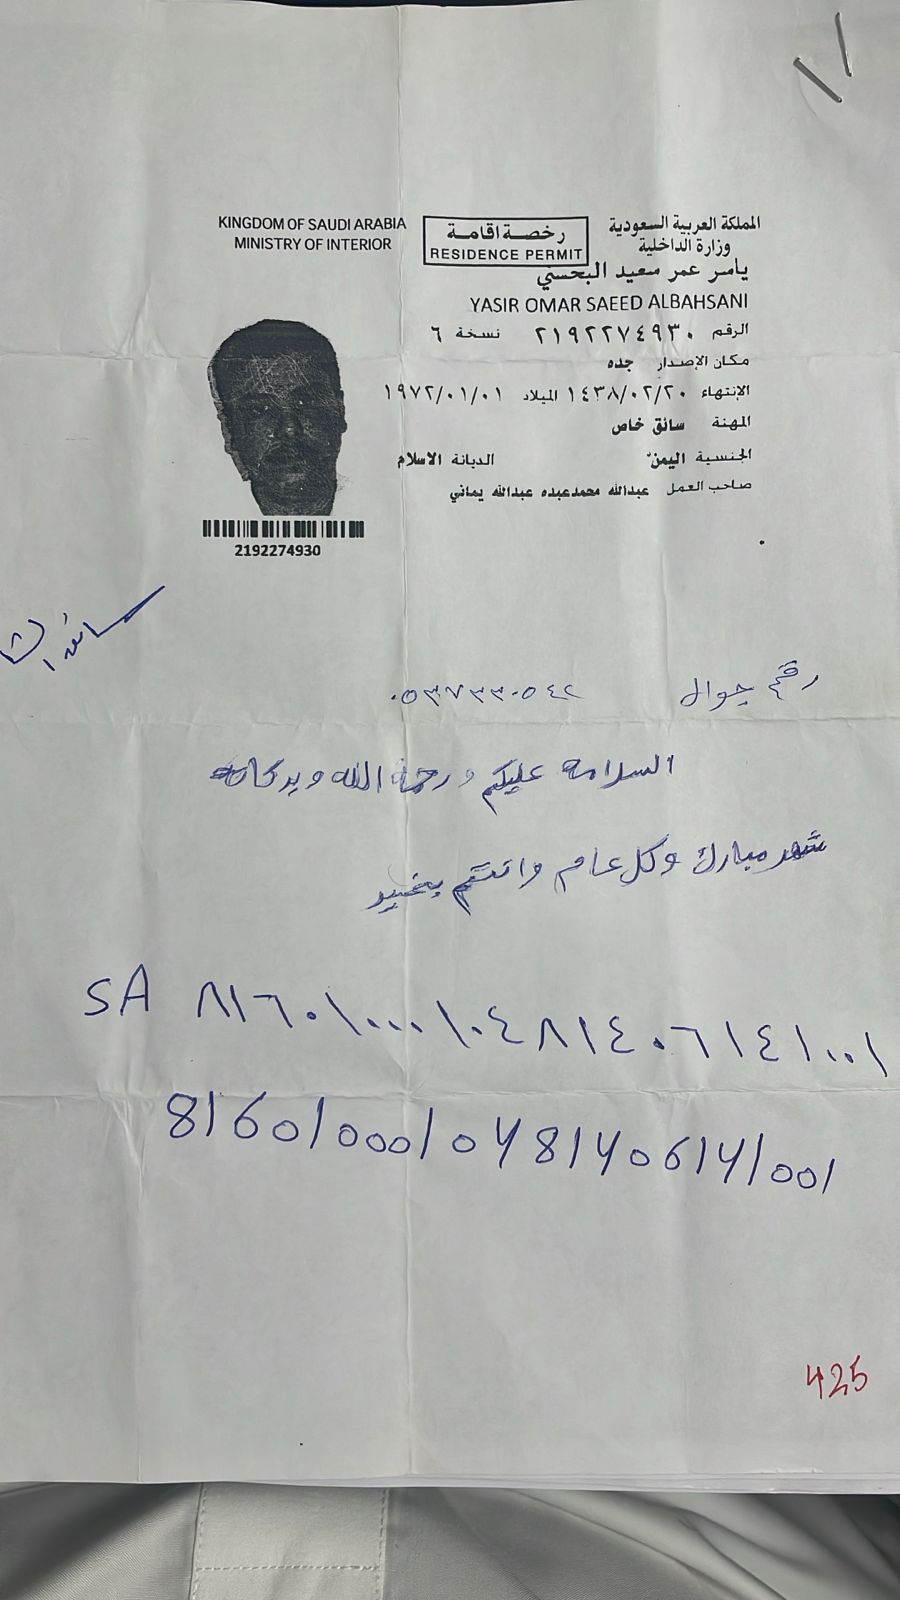 KINGDOM OF SAUDI ARABIA
MINISTRY OF INTERIOR
رخصة اقامة
RESIDENCE PERMIT
المملكة العربية السعودية
وزارة الداخلية
ياسر عمر سعيد البحسني
YASIR OMAR SAEED ALBAHSANI
الرقم ٢١٩٢٢٧٤٩٣٠ نسخة ٦
مكان الإصدار جده
الإنتهاء ١٤٣٨/٠٢/٢٠ الميلاد ١٩٧٢/٠١/٠١
المهنة سائق خاص
الجنسية اليمن الديانة الاسلام
صاحب العمل عبدالله محمدعبده عبدالله يماني
2192274930
رقم جوال ٠٥٣٧٣٣٠٥٤٢
السلامه عليكم ورحمة الله وبركاته
شهر مبارك وكل عام وانتم بخير
SA ٨١٦٠١٠٠٠١٠٤٨١٤٠٦١٤١٠٠١
8160100010481406141001
425